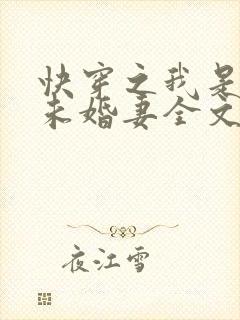 快穿之我是
未婚妻全文
夜江雪